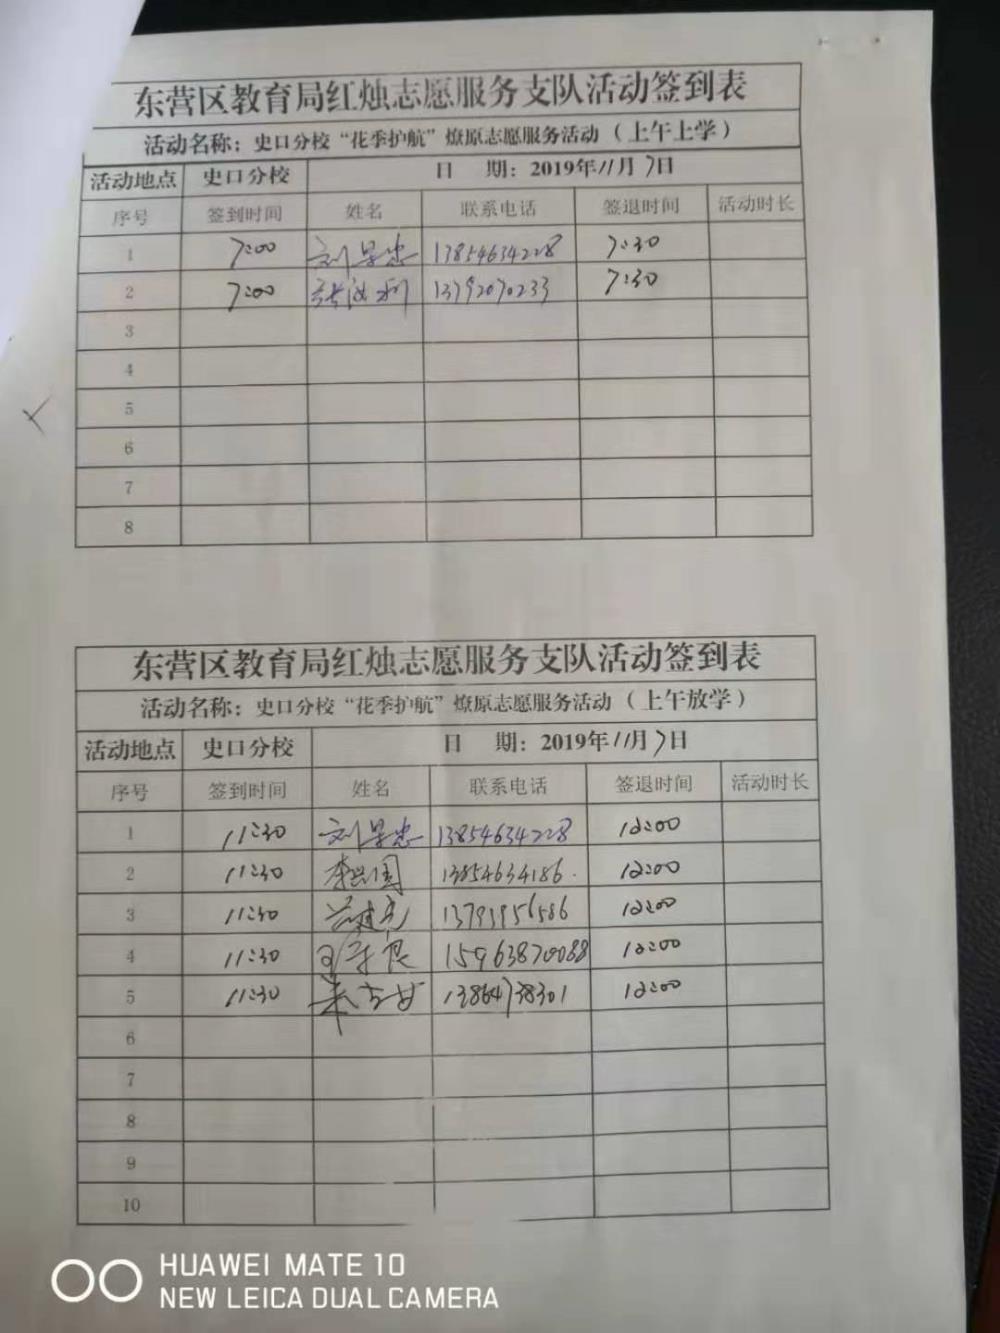 东营区教育局红烛志愿服务支队活动签到表
活动名称：史口分校“花季护航”燎原志愿服务活动（上午上学）
活动地点 史口分校 日 期：2019年11月7日
序号 签到时间 姓名 联系电话 签退时间 活动时长
1 7:00 刘景忠 13854634228 7:30
2 7:00 13792070233 7:30
3
4
5
6
7
8
东营区教育局红烛志愿服务支队活动签到表
活动名称：史口分校“花季护航”燎原志愿服务活动（上午放学）
活动地点 史口分校 日 期：2019年11月7日
序号 签到时间 姓名 联系电话 签退时间 活动时长
1 11:30 刘景忠 13854634228 12:00
2 11:30 李兴国 13854634186 12:00
3 11:30 13793956586 12:00
4 11:30 15963870088 12:00
5 11:30 13864738301 12:00
6
7
8
9
10
HUAWEI MATE 10
NEW LEICA DUAL CAMERA